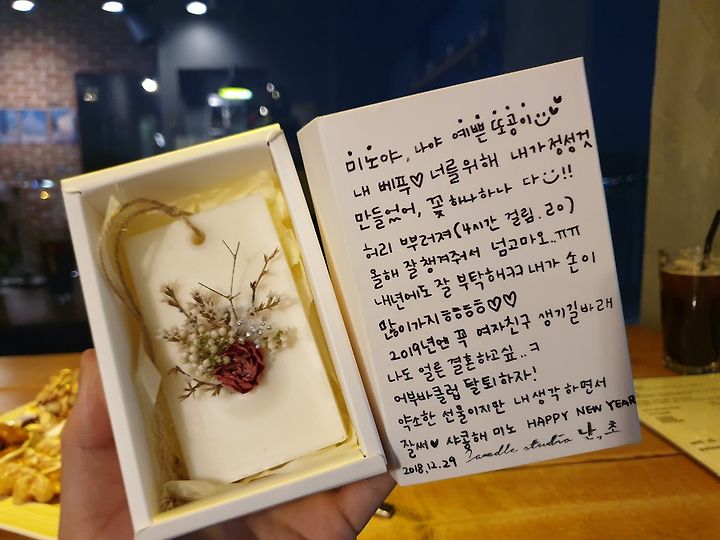 미노야, 나야 예쁜 또콩이
내 베푸♡ 너를위해 내가 정성껏
만들었어, 꽃 하나하나 다 !!
허리 뿌러져 (4시간 걸림. 리이)
올해 잘챙겨줘서 넘고마오..ㅠㅠ
내년에도 잘 부탁해ㅋㅋ 내가 손이
많이가지 ㅎㅎㅎㅎ♡♡
2019년엔 꼭 여자친구 생기길바래
나도 얼른 결혼하고싶..ㅋ
어부바클럽 탈퇴하자!
약소한 선물이지만 내생각 하면서
잘써♥ 샤콩해 미노 HAPPY NEW YEAR
2018.12.29 studio